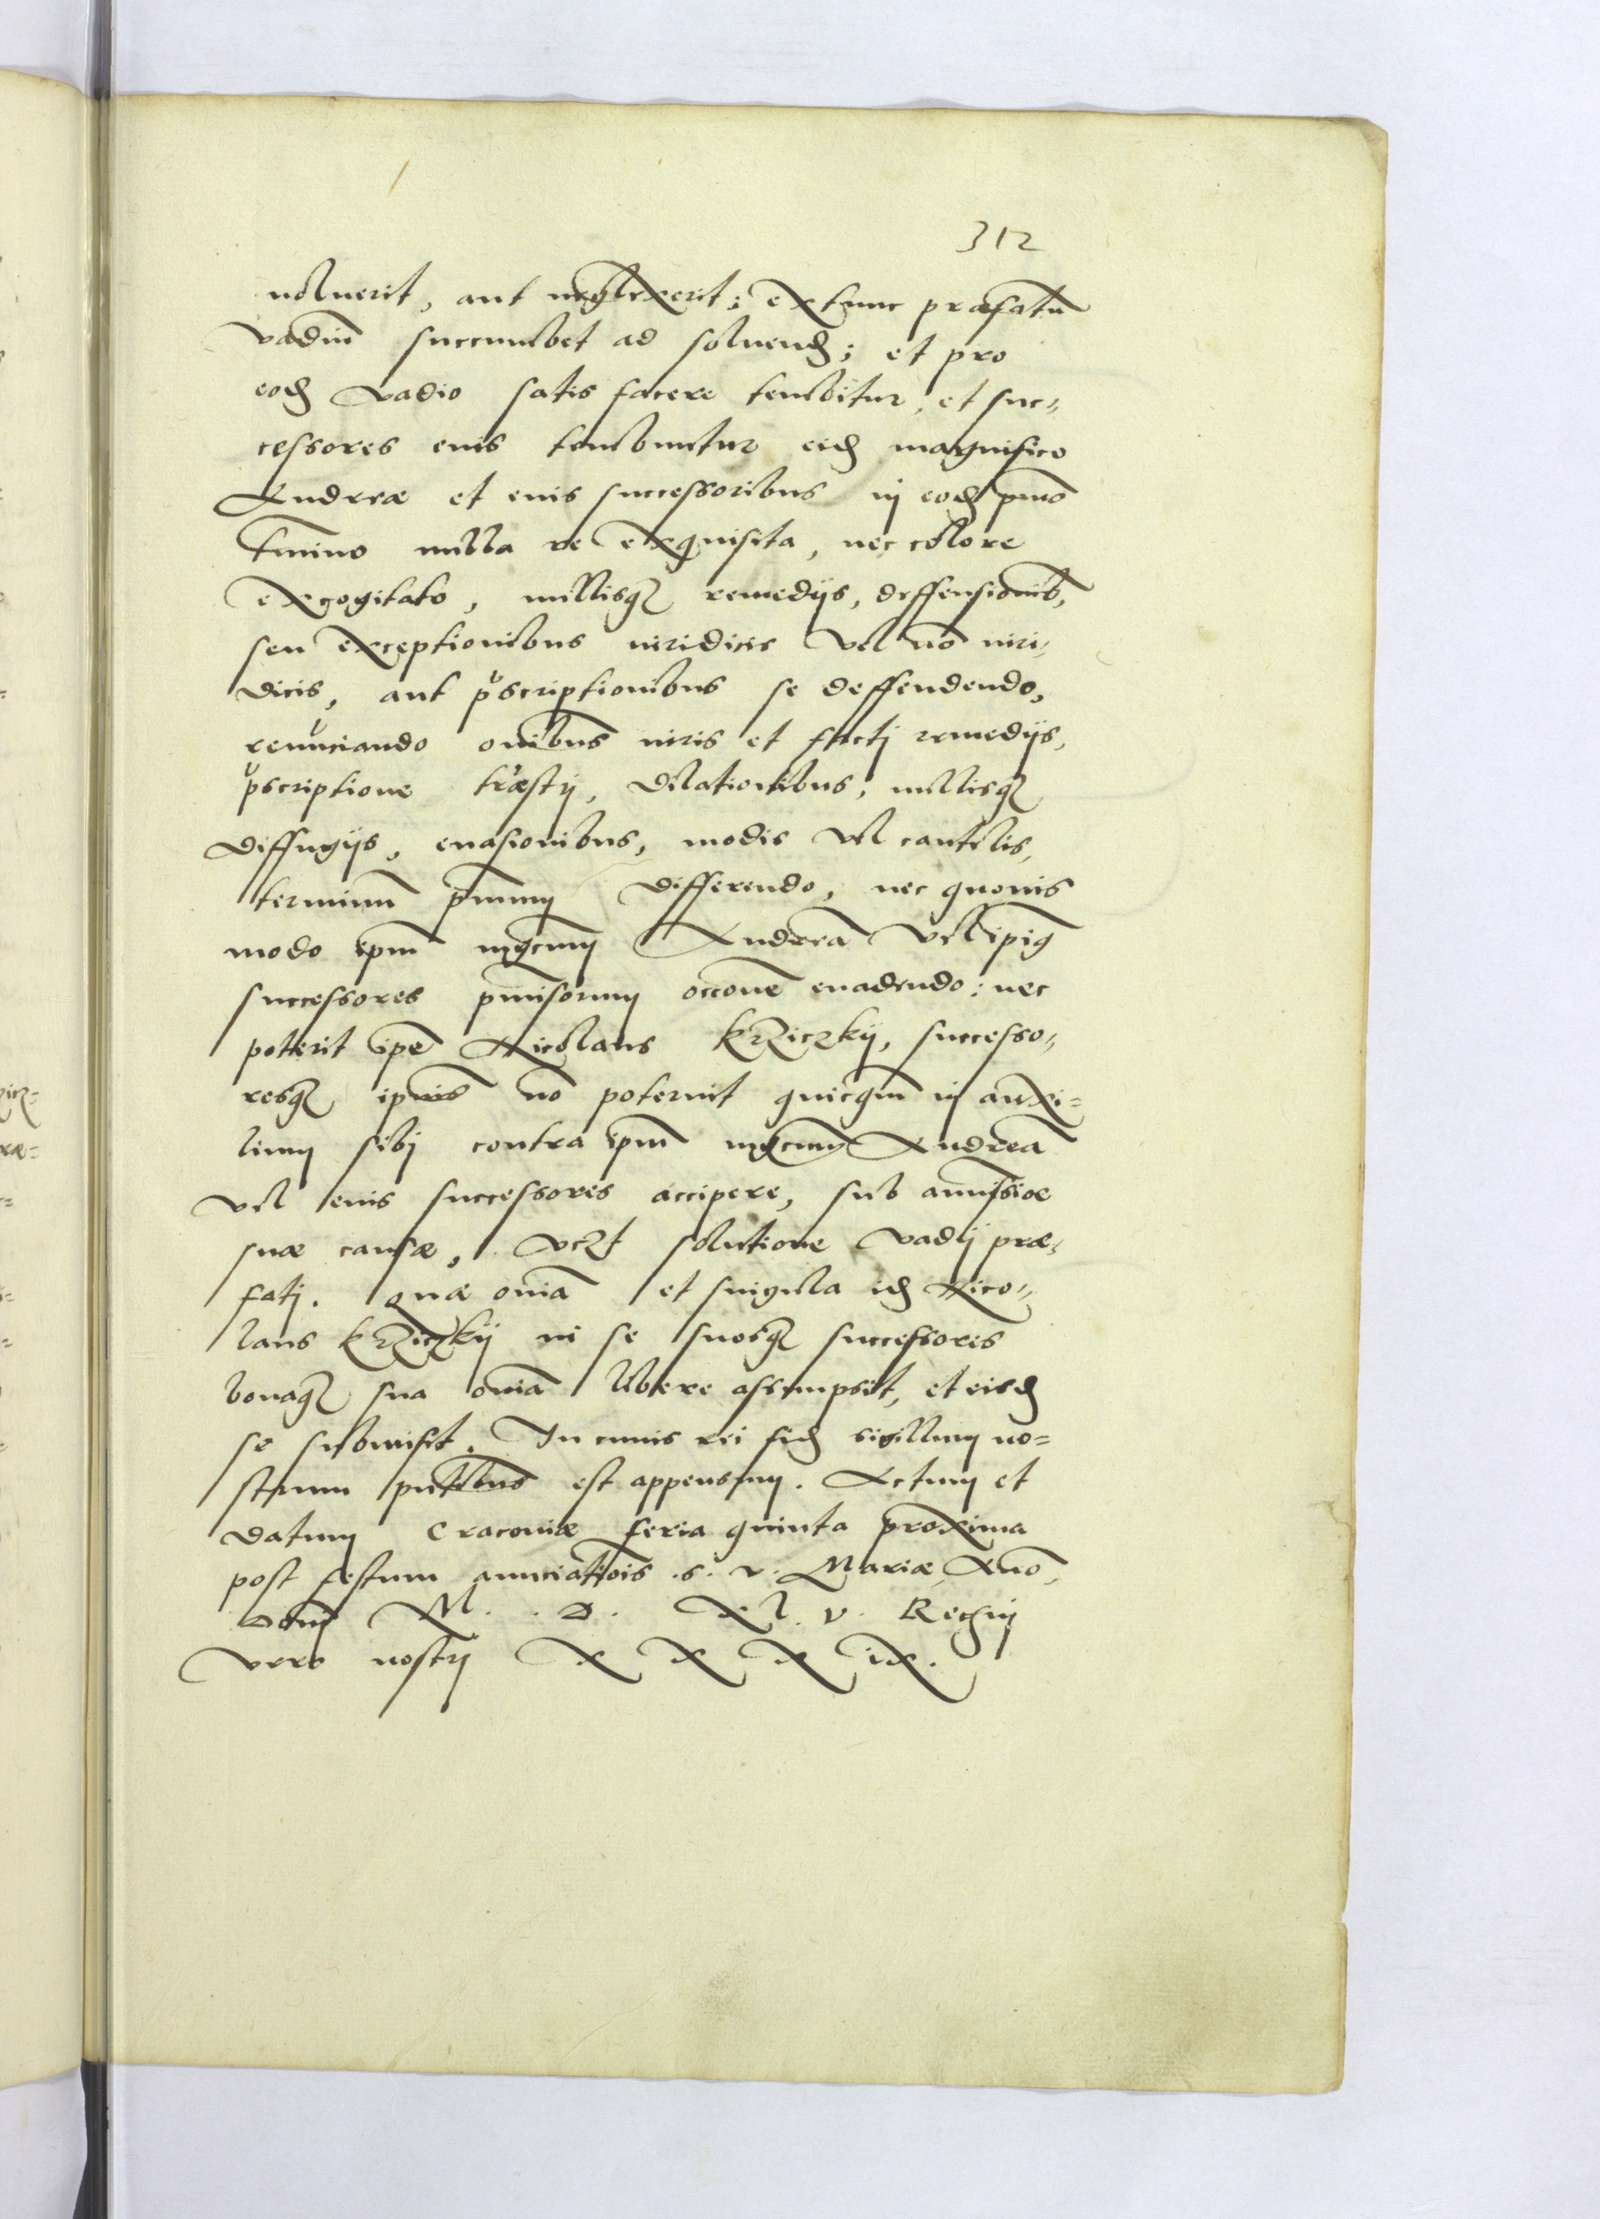 312
noluerit, aut neglexerit; extunc præfatū
vadiū succumbet ad soluend; et pro
eod vadio satis facere tenebitur, et suc-
cessores eius tenebuntur eid magnifico
Andreæ et eius successoribus in eod pmo
termino nulla re exquisita, nec colore
excogitato, nullisq remedijs, deffensionib,
seu exceptionibus iuridicis vel nō iuri-
dicis, aut pscriptionibus se deffendendo,
renūciando oībus iuris et facti remedijs,
pscriptione terræstri, dilationibus, nullisq
diffugijs, euasionibus, modis vel cautelis,
terminū pmum differendo, nec quouis
modo ipm mgcum Andreā vel ipiq
successores pmissorum occone euadendo: nec
poterit ipe Nicolaus Krziczkij, successo-
resq ipius nō poterint quicqm in auxi=
lium sibi contra ipm mgcum Andreā
vel eius successores accipere, sub amissioe
suæ causæ, vczt solutione vadij præ-
fati. Quæ oīa et singula id Nico-
laus Krziczkij in se suosq successores
bonaq sua oīa libere assumpsit, et eisd
se submisit. In cuius rei fid sigillum no=
strum pntibus est appensum. Actum et
datum Cracouiæ feria quinta proxima
post festum anūciatiois .s. v. Mariæ, Ano
Domi M. D. XL. v. Regni
vero nostri X X X ix.